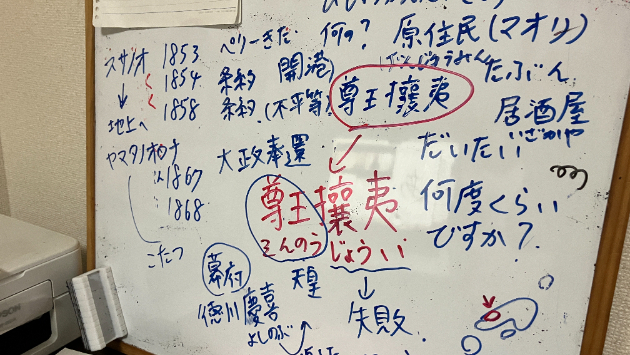 何の?
原住民(マオリ)
げんじゅうみん
たぶん
居酒屋
いざかや
だいたい
何度くらい
ですか?
スサノオ
↓
地上へ
1853 ペリーきた
1854 条約 開港
1858 条約.(不平等)
尊王攘夷
大政奉還
1867
1868
こたつ
尊王攘夷
そんのう じょうい
幕府
天皇
徳川慶喜
よしのぶ
↓
失敗.
EPSON